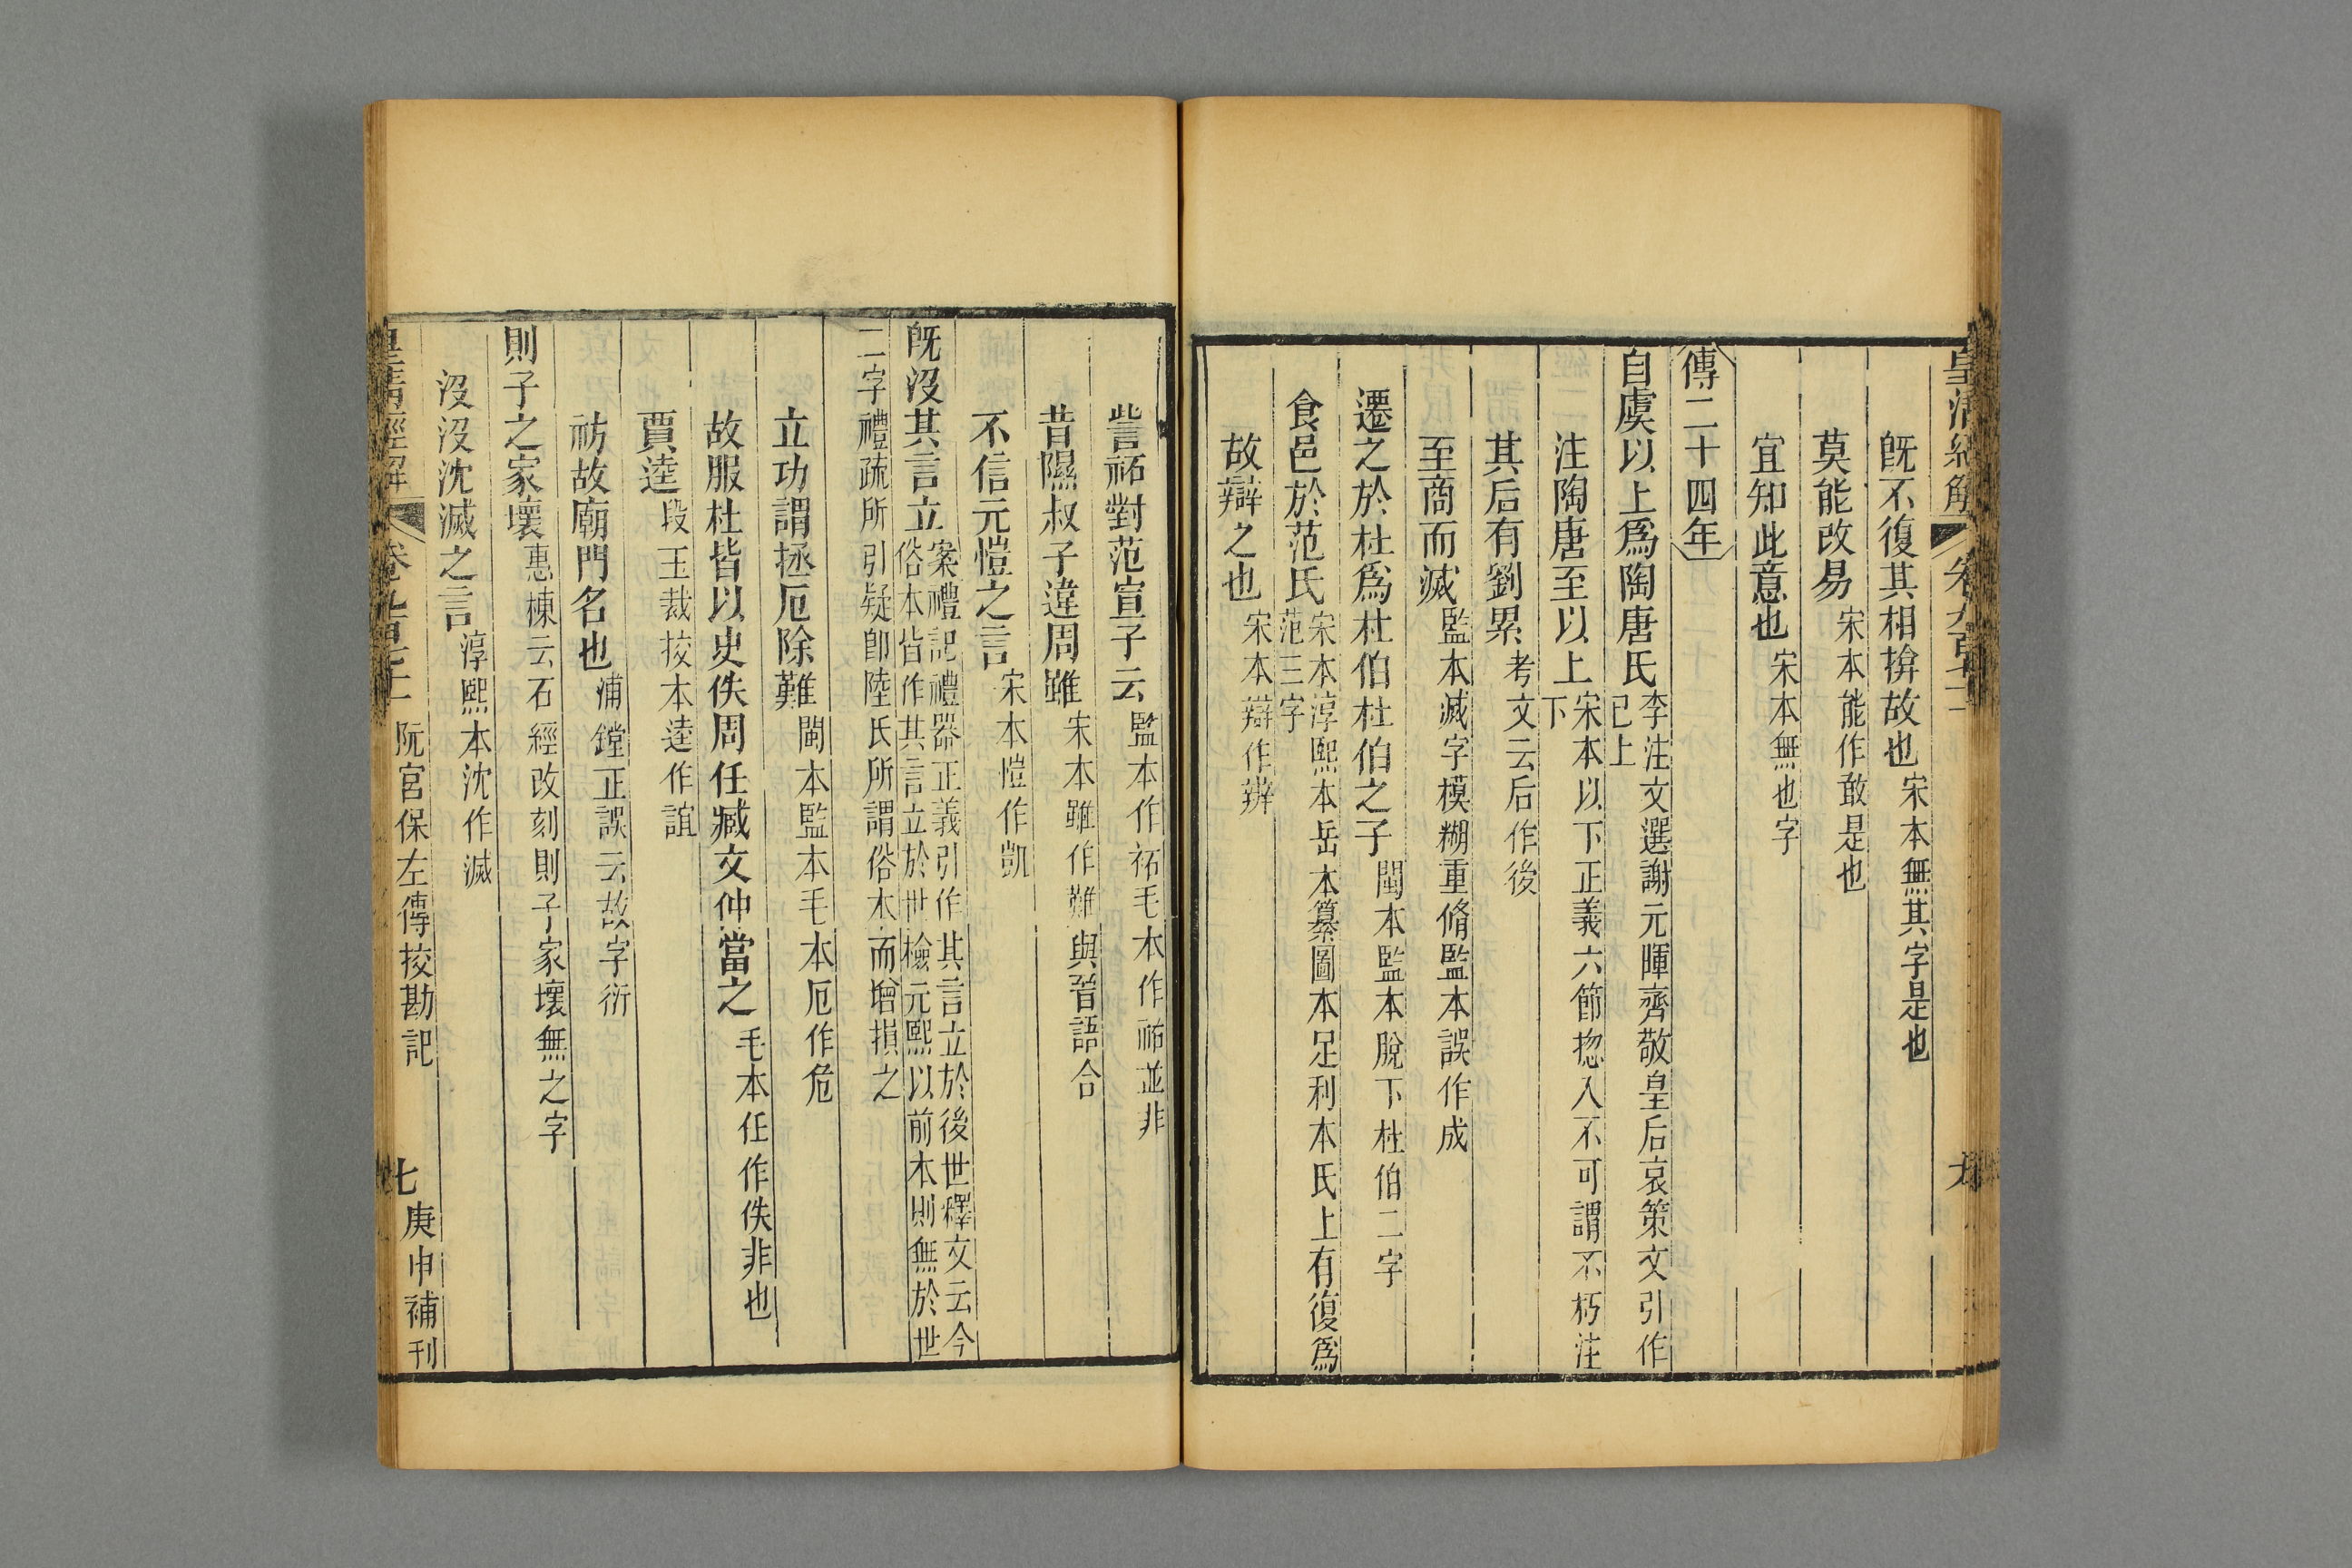 皇清經解 卷九百
既不復其相揜故也宋本無其字是也
莫能改易宋本能作敢是也
宜知此意也宋本無也字
傳二十四年
自虞以上爲陶唐氏李注文選謝元暉齊敬皇后哀策文引作已上
注陶唐至以上宋本以下正義六節揔入不可謂不朽注下
其后有劉累考文云后作後
至商而滅監本滅字模糊重脩監本誤作成
遷之於杜爲杜伯杜伯之子閩本監本脫下杜伯二字
食邑於范氏宋本淳熙本岳本纂圖本足利本氏上有復爲范三字
故辯之也宋本辯作辨
訾祏對范宣子云監本作祏毛本作祐並非
昔隰叔子違周雖宋本雖作難與晉語合
不信元愷之言宋本愷作凱
旣沒其言立案禮記禮器正義引作其言立於後世釋文云今俗本皆作其言立於世檢元熙以前本則無於世
二字禮疏所引疑卽陸氏所謂俗本而增損之
立功謂拯厄除難閩本監本毛本厄作危
故服杜皆以史佚周任臧文仲當之毛本任作佚非也
賈逵段玉裁挍本逵作誼
祊故廟門名也浦鏜正誤云故字衍
則子之家壞惠棟云石經改刻則子家壞無之字
沒沒沈滅之言淳熙本沈作滅
皇清經解 卷九百 阮宮保左傳挍勘記 七 庚申補刊